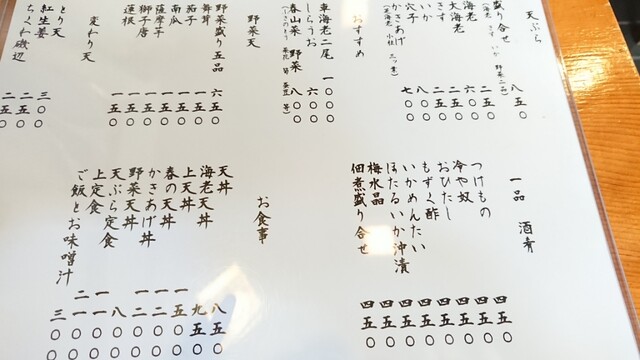 天ぷら
盛り合せ (海老 きす いか 野菜二品) 八五〇
海老 二五〇
大海老 六〇〇
きす 二五〇
いか 二五〇
穴子 六〇〇
かきあげ (海老 小柱 三つ葉) 七〇〇
おすすめ
車海老二尾 一〇〇〇
しらうお 六〇〇
春山菜 野菜 八〇〇
野菜天
野菜盛り五品 六五〇
舞茸 一五〇
茄子 一五〇
南瓜 一五〇
薩摩芋 一五〇
獅子唐 一五〇
蓮根 一五〇
変わり天
とり天 三〇〇
紅生姜 二五〇
ちくわ磯辺 二五〇
一品 酒肴
つけもの 四五〇
冷や奴 四五〇
おひたし 四五〇
もずく酢 四五〇
いかめんたい 四五〇
ほたるいか沖漬 四五〇
梅水晶 四五〇
佃煮盛り合せ 四五〇
お食事
天丼 八五〇
海老天丼 九五〇
上天丼 一五〇〇
春の天丼 一二〇〇
かきあげ丼 一二〇〇
野菜天丼 八〇〇
天ぷら定食 一一〇〇
上定食 二一〇〇
ご飯とお味噌汁 三〇〇